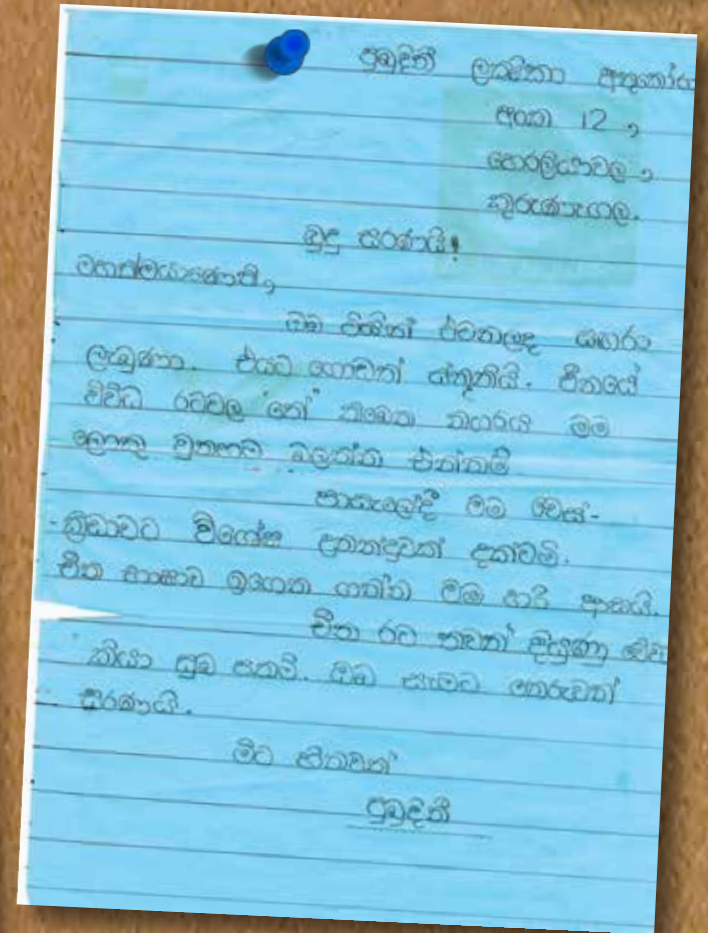 ප්‍රබුදිනී ලක්ෂිකා
අංක 12 ,
හෙරලියාවල ,
කුරුණෑගල.
බුදු සරණයි!
මහත්මයාණෙනි,
ඔබ විසින් එවනලද සඟරා
ලැබුණා. එයට ගොඩක් ස්තූතියි. චීනයේ
විවිධ රටවල නගරය මම
ලොකු වුනහම බලන්න එන්නම්
පාසැලේදී මම චෙස්-
-ක්‍රීඩාවට විශේෂ උනන්දුවක් දක්වමි.
චීන භාෂාව ඉගෙන ගන්න මම හරි ආසයි.
චීන රට තවත් දියුණු
කියා සුබ පතමි. ඔබ සැමට තෙරුවන්
සරණයි.
මීට හිතවත්
ප්‍රබුදිනී